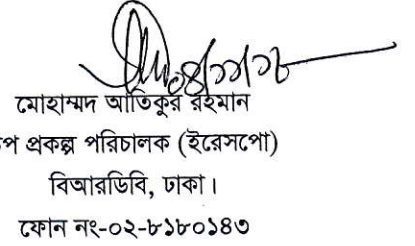 ০৪/১১/১৮
মোহাম্মদ আতিকুর রহমান
প প্রকল্প পরিচালক (ইরেসপো)
বিআরডিবি, ঢাকা।
ফোন নং-০২-৮১৮০১৪৩